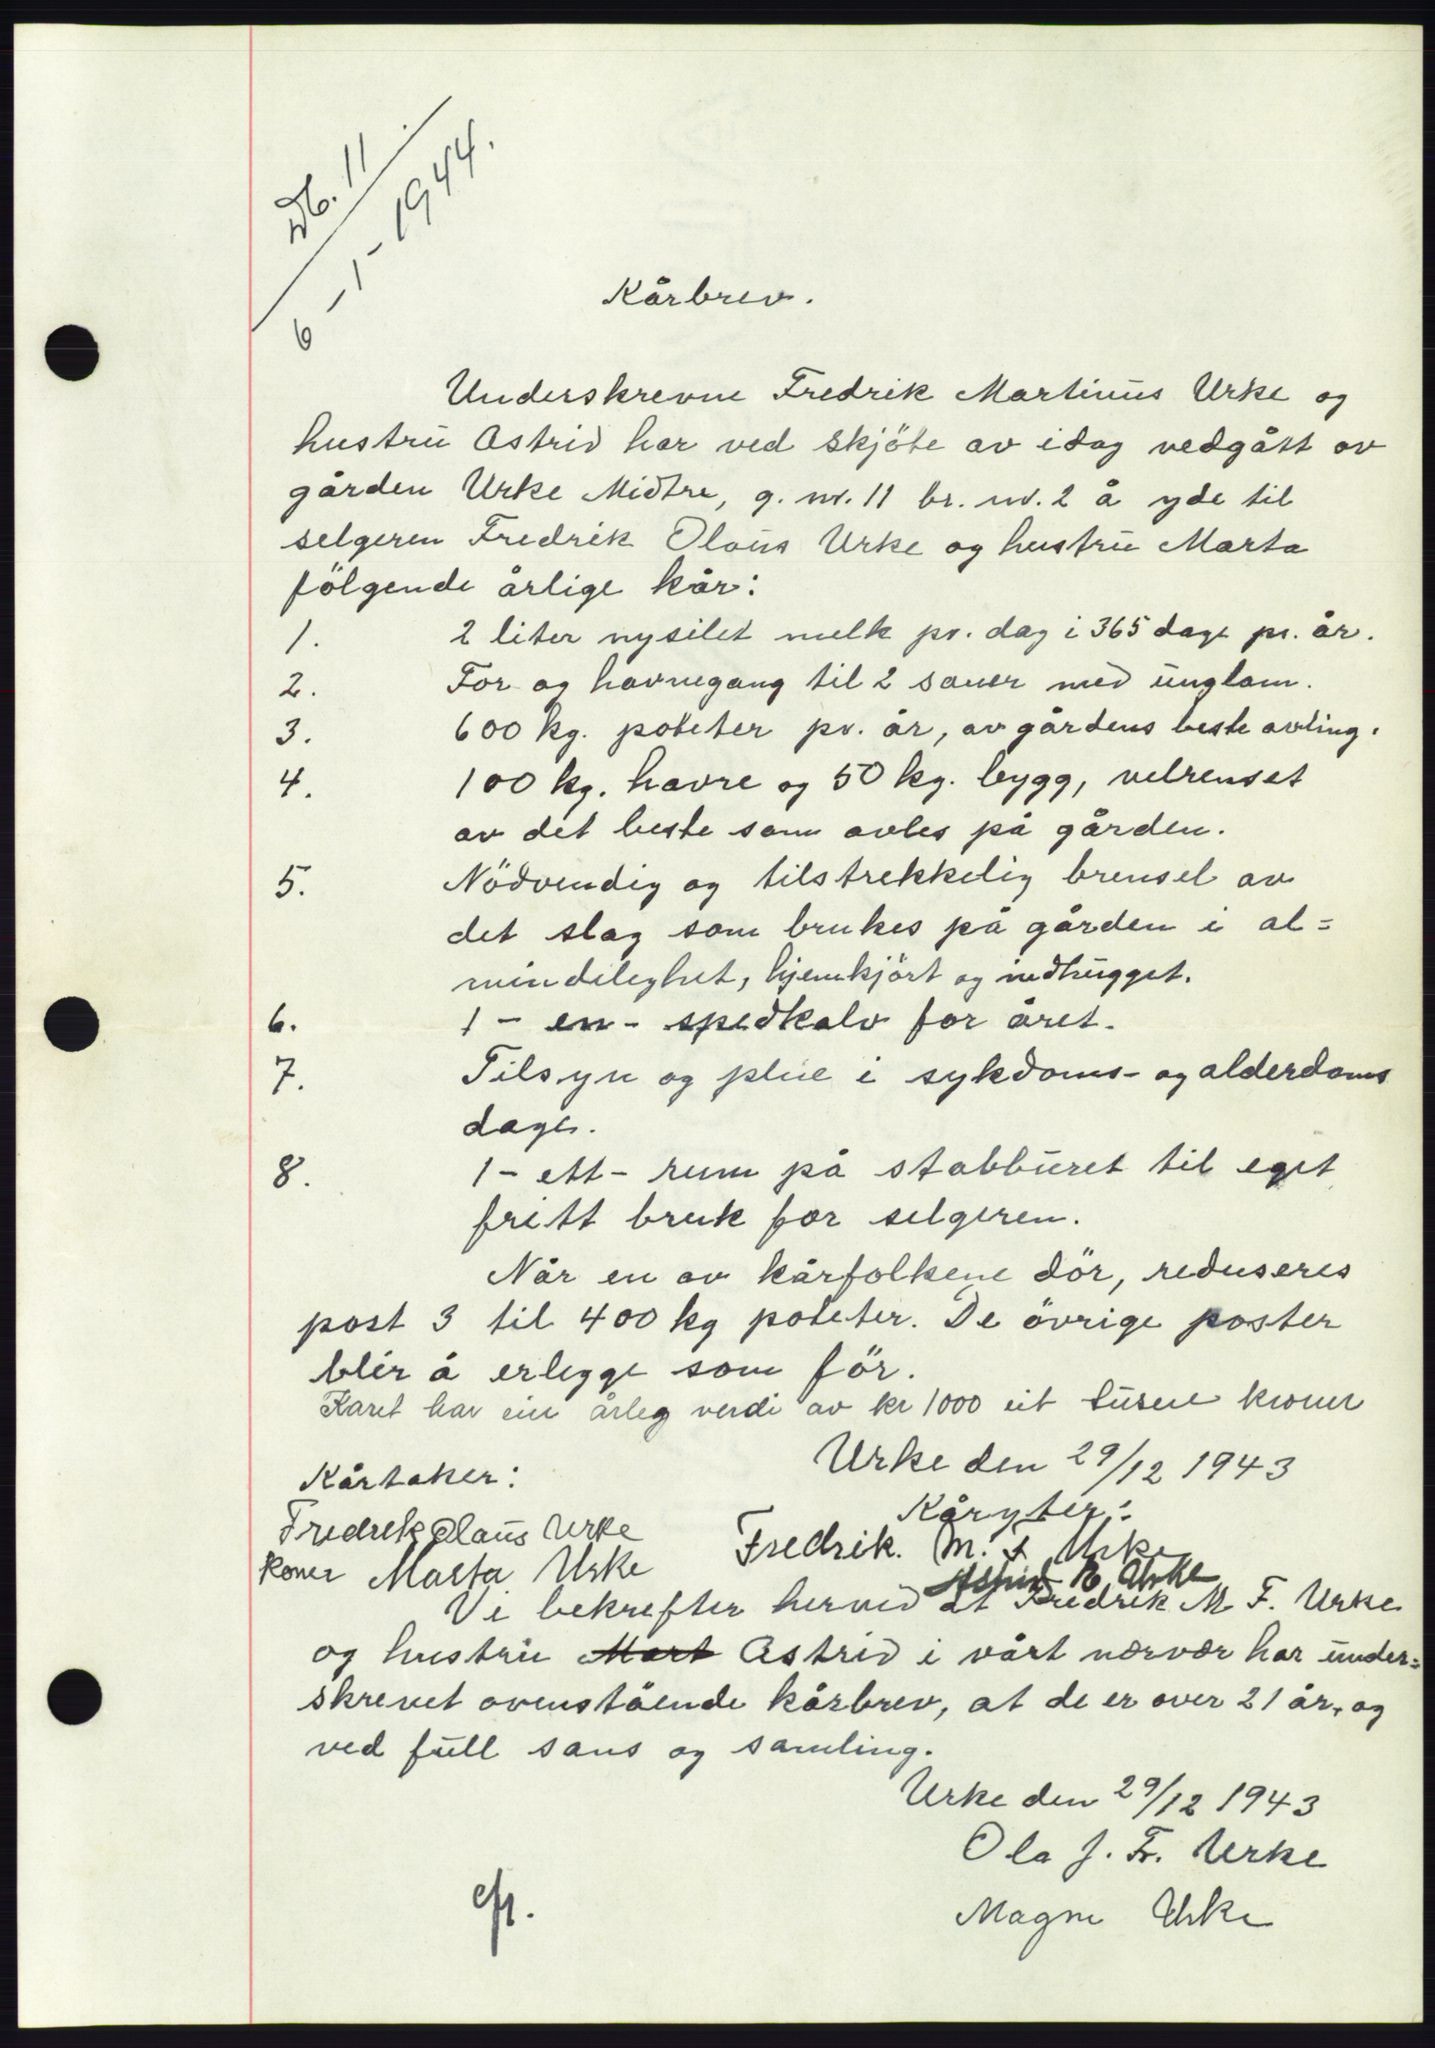 Db. 11
6 - 1 - 1944.
Kårbrev.
Underskrevne Fredrik Martinus Urke og
hustru Astrid har ved skjöte av idag vedgått av
gården Urke Midtre, g. nr. 11 br. nr. 2 å yde til
selgeren Fredrik Olaus Urke og hustru Marta
fölgende årlige kår:
1. 2 liter nysilet melk pr. dag i 365 dage pr. år.
2. For og havnegang til 2 sauer med unglam.
3. 600 kg. poteter pr. år, av gårdens beste avling.
4. 100 kg. havre og 50 kg. bygg, velrenset
av det beste som avles på gården.
5. Nödvendig og tilstrekkelig brensel av
det slag som brukes på gården i al=
mindelighet, hjemkjört og nedhugget.
6. 1 - en - spedkalv for året.
7. Tilsyn og pleie i sykdoms- og alderdoms
dage.
8. 1 - ett - rum på stabburet til eget
fritt bruk for selgeren.
Når en av kårfolkene dör, reduseres
post 3 til 400 kg poteter. De övrige poster
blir å erlegge som för.
Karet har ein årleg verdi av kr 1000 eit tusen kroner
Urke den 29/12 1943
Kårtaker:
Kåryter:
Fredrik Olaus Urke
Fredrik. M. F Urke
Koner Marta Urke
Astrid E Urke
Vi bekrefter herved at Fredrik M F. Urke
og hustru Mart Astrid i vårt nærvær har under=
skrevet ovenstående kårbrev, at de er over 21 år, og
ved full sans og samling.
Urke den 29/12 1943
Ola J. Fr. Urke
Magne Urke